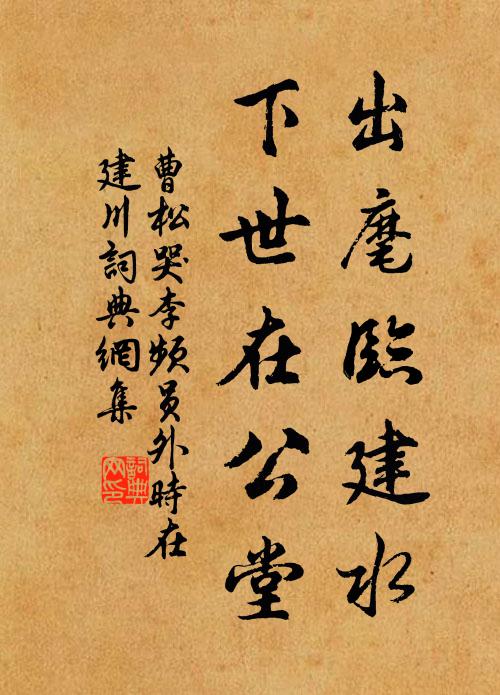 出麾臨建水
下世在公堂
曹松哭李頻員外時在
建川詞典網集
詞典
网印